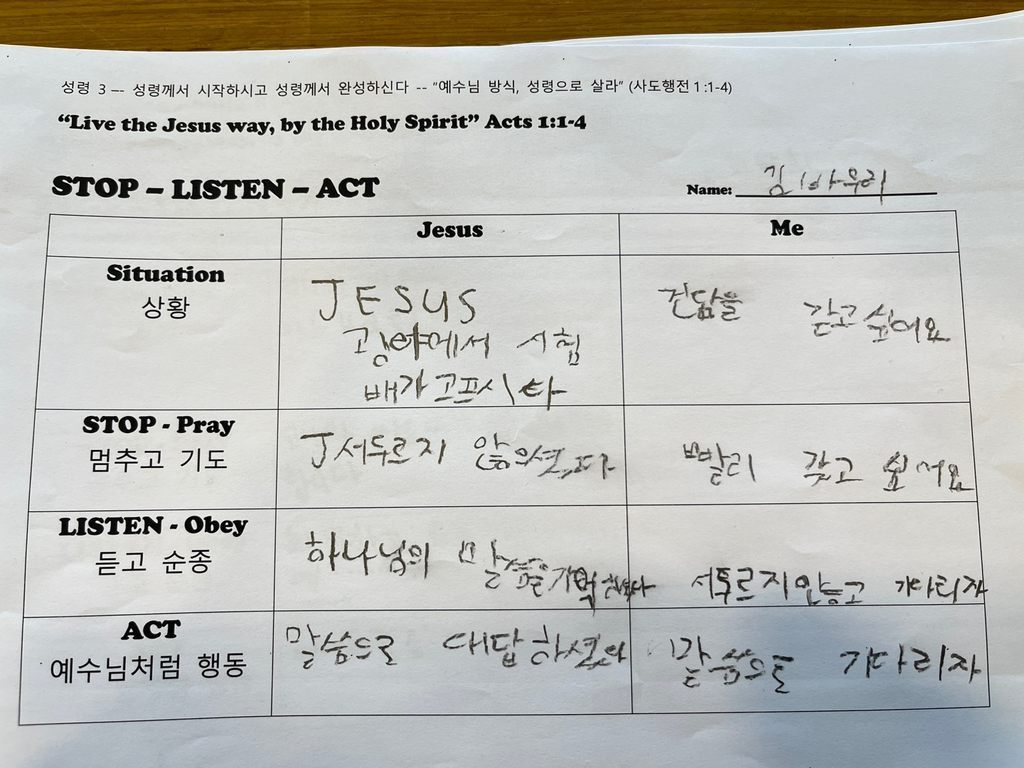 성령 3 –- 성령께서 시작하시고 성령께서 완성하신다 -- “예수님 방식, 성령으로 살라” (사도행전 1:1-4)
“Live the Jesus way, by the Holy Spirit” Acts 1:1-4
STOP – LISTEN – ACT
Name: 김바우리
Jesus
Me
Situation
상황
JESUS
광야에서 시험
배가 고프시다
건담을 갖고 싶어요
STOP - Pray
멈추고 기도
J 서두르지 않으셨다
빨리 갖고 싶어요
LISTEN - Obey
듣고 순종
하나님의 말씀을 기억하셨다
서두르지 안능고 기다리자
ACT
예수님처럼 행동
말씀으로 대답하셨다
말씀으로 기다리자